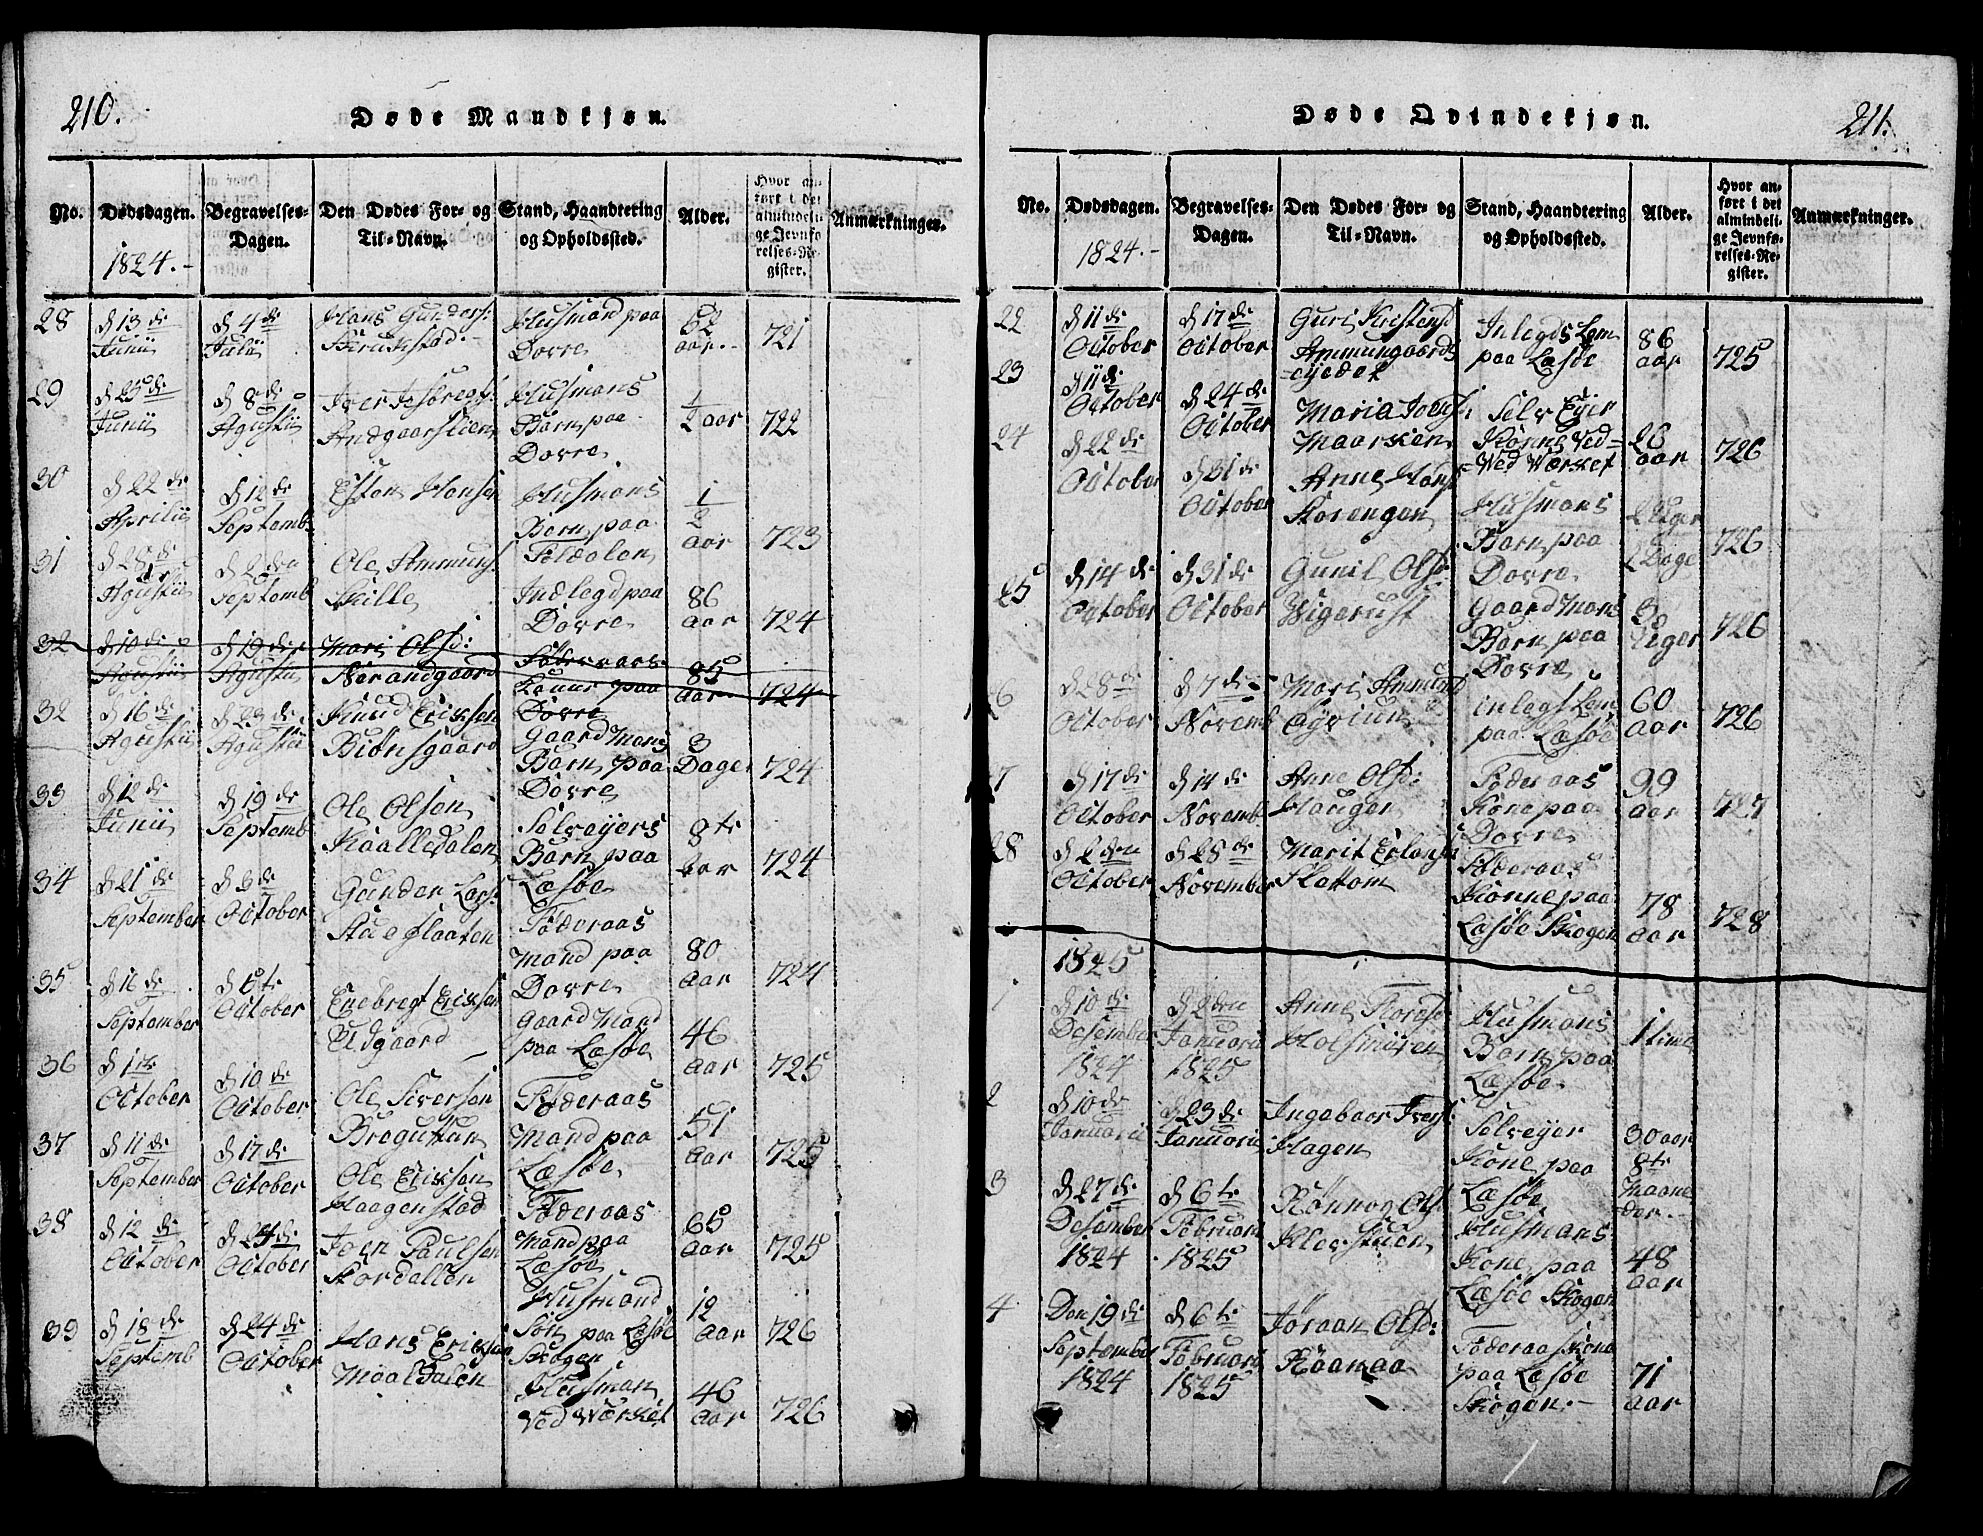 210.
Døde Mandkjøn.
No. Dødsdagen. Begravelses-Dagen. Den Dødes For- og Til-Navn. Stand, Haandtering og Opholdssted. Alder. Hvor anført i det almindelige Jevnførelses-Register. Anmærkninger.
1824.-
28 d 13de Junii d 4de Julii Hans Gunders: Husmand paa Dovre 62 aar.- 721
29 d 25de Junii d 8de Agustii Iver Husmans Barn paa Dovre 1/2 aar 722
30 d 22de Aprilii d 12de Septemb: Esten Hansen Husmans Barn paa Foldalen 1/2 aar 723
31 d 28de Agustii d 2den Septemb Ole Ammuns: Kille Indlegd paa Dovre 86 aar 724
32 d 10de Agustii d 19de Agustii Mari Olsd: Norandgaard Kaane paa Dovre 85 aar 724
32 d 16de Agustii d 23de Agustii Knud Ericksen Biønsgaard Gaard Mans Barn paa Dovre 3 Dage 724
33 d 12de Junii d 19de Septemb Ole Olsen Kaalledalen Selveyers Barn paa Læsøe 8te aar 724
34 d 21de September d 3de October Gunder Lars: Staeslaaten Føderaas Mand paa Dovre 80 aar 724
35 d 16de September d 6te October Endbregt Ericksen Udgaard Gaard Mand paa Læsøe 46 aar 725
36 d 1te October d 10de October Ole Siversen Føderaas Mand paa Læsøe 51 aar 725
37 d 11de September d 17de October Ole Ericksen Haagenstad Føderaas Mand paa Læsøe 65 aar 725
38 d 12de October d 24de October Joen Paulsen Stordallen Husmand Søn paa Læsøe Skogen 12 aar 726
39 d 18de Septemb d 24de October Hans Ericksen Møaldalen Husman Ved Værket 46 aar 726
Døde Qvindekjøn.
211.
No. Dødsdagen. Begravelses-Dagen. Den Dødes For- og Til-Navn. Stand, Haandtering og Opholdssted. Alder. Hvor anført i det almindelige Jevnførelses-Register. Anmærkninger.
1824.-
22 d 11de October d 17de October Guri Kristensd Ammungaards Inlegds Lem paa Læsøe 86 aar 725
23 d 11de October d 24de October Maria Joens: Selv Eyer Kønne Ved Ved Værket 26 aar 726
24 d 22de October d 31de October Anne Hans Storengen Husmans Barn paa Dovre 2 Uger 2 Dage 726
25 d 14de October d 31de October Gunil Olsd Vigerust Gaard Mans Barn paa Dovre 3 Uger 726
6 d 28de October d 7de Novemb Mari Ammunds inlegs Lem paa Læsøe 60 aar 726
7 d 17de October d 14de Novemb Anne Olsd: Hauger Føderaas Kone paa Dovre 99 aar 727
28 d 2den October d 28de November Marit Erlans Flattom Føderaas Kønne paa Læsøe Skogen 78 aar 728
1825
d 10de Desember 1824 d 2den Januarii 1825 Anne Holsmøren Husmans Barn paa Læsøe 1 time
2 d 10de Januarii d 23de Januarii Ingebaar Hagen Selveyer Kone paa Læsøe 30 aar 8te Maaneder.-
3 d 27de Desember 1824 d 6te Februarii 1825 Rønnog Olsd Klevstuen Husmans Kone paa Læsøe Skogen 48 aar
4 Den 19de September 1824 d 6te Februarii 1825 Jøraan Olsd: Raanaa Føderaas Kone paa Læsøe Skogen.- 71 aar